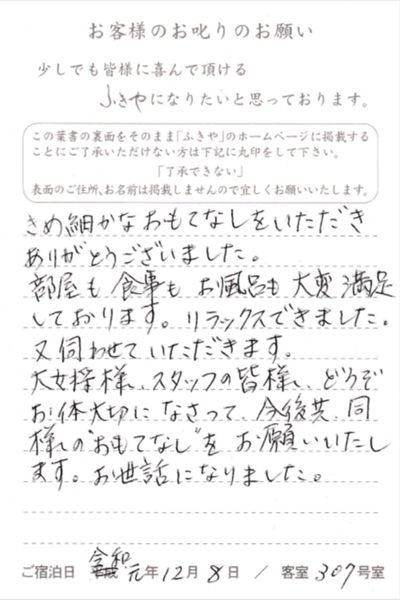 お客様のお叱りのお願い
少しでも皆様に喜んで頂ける
ふきやになりたいと思っております。
この葉書の裏面をそのまま「ふきや」のホームページに掲載する
ことにご了承いただけない方は下記に丸印をして下さい。
「了承できない」
表面のご住所、お名前は掲載しませんので宜しくお願いいたします。
きめ細かなおもてなしをいただき
ありがとうございました。
部屋も食事もお風呂も大変満足
しております。リラックスできました。
又伺わせていただきます。
大女将様、スタッフの皆様、どうぞ
お体大切になさって、今後共、同
様の"おもてなし"をお願いいたし
ます。お世話になりました。
令和
ご宿泊日 平成 元年12月8日 / 客室 307号室